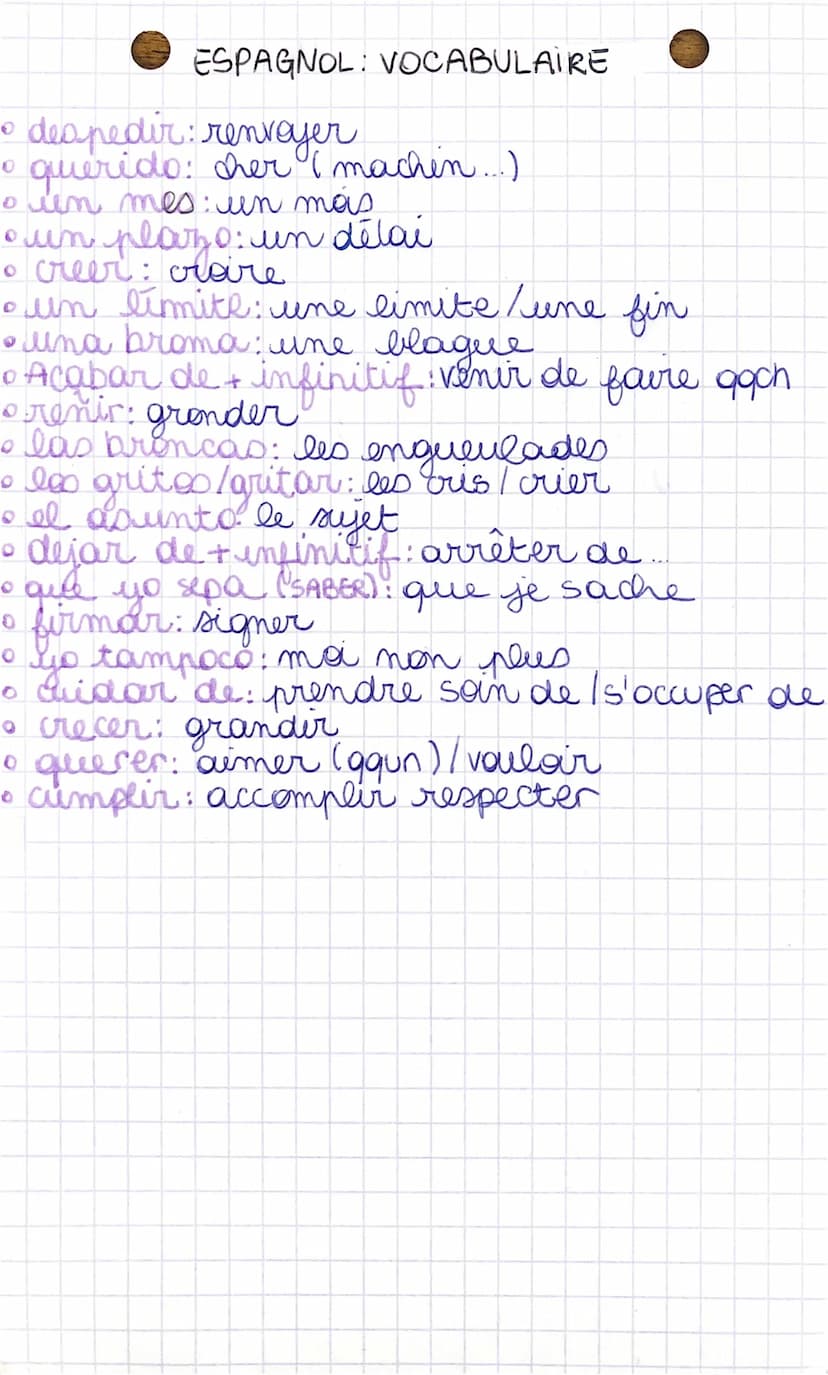 ESPAGNOL: VOCABULAIRE
• despedir: renvoyer
• querido: cher (machin...)
• un mes: un mois
• un plazo: un délai
• creer: croire
• un límite: une limite/une fin
• una broma: une blague
• Acabar de + infinitif: venir de faire qqch
• reñir: gronder
• las broncas: les engueulades
• los gritos/gritar: les cris/crier
• el asunto: le sujet
• dejar de + infinitif: arrêter de...
• que yo sepa (SABER): que je sache
• firmar: signer
• yo tampoco: moi non plus
• cuidar de: prendre soin de/s'occuper de
• crecer: grandir
• querer: aimer (qqun)/vouloir
• cumplir: accomplir respecter